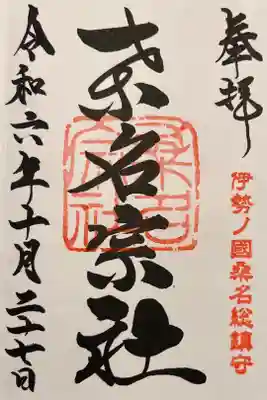 奉拝
伊勢ノ國桑名総鎮守
桑名宗社
令和六年十月二十七日